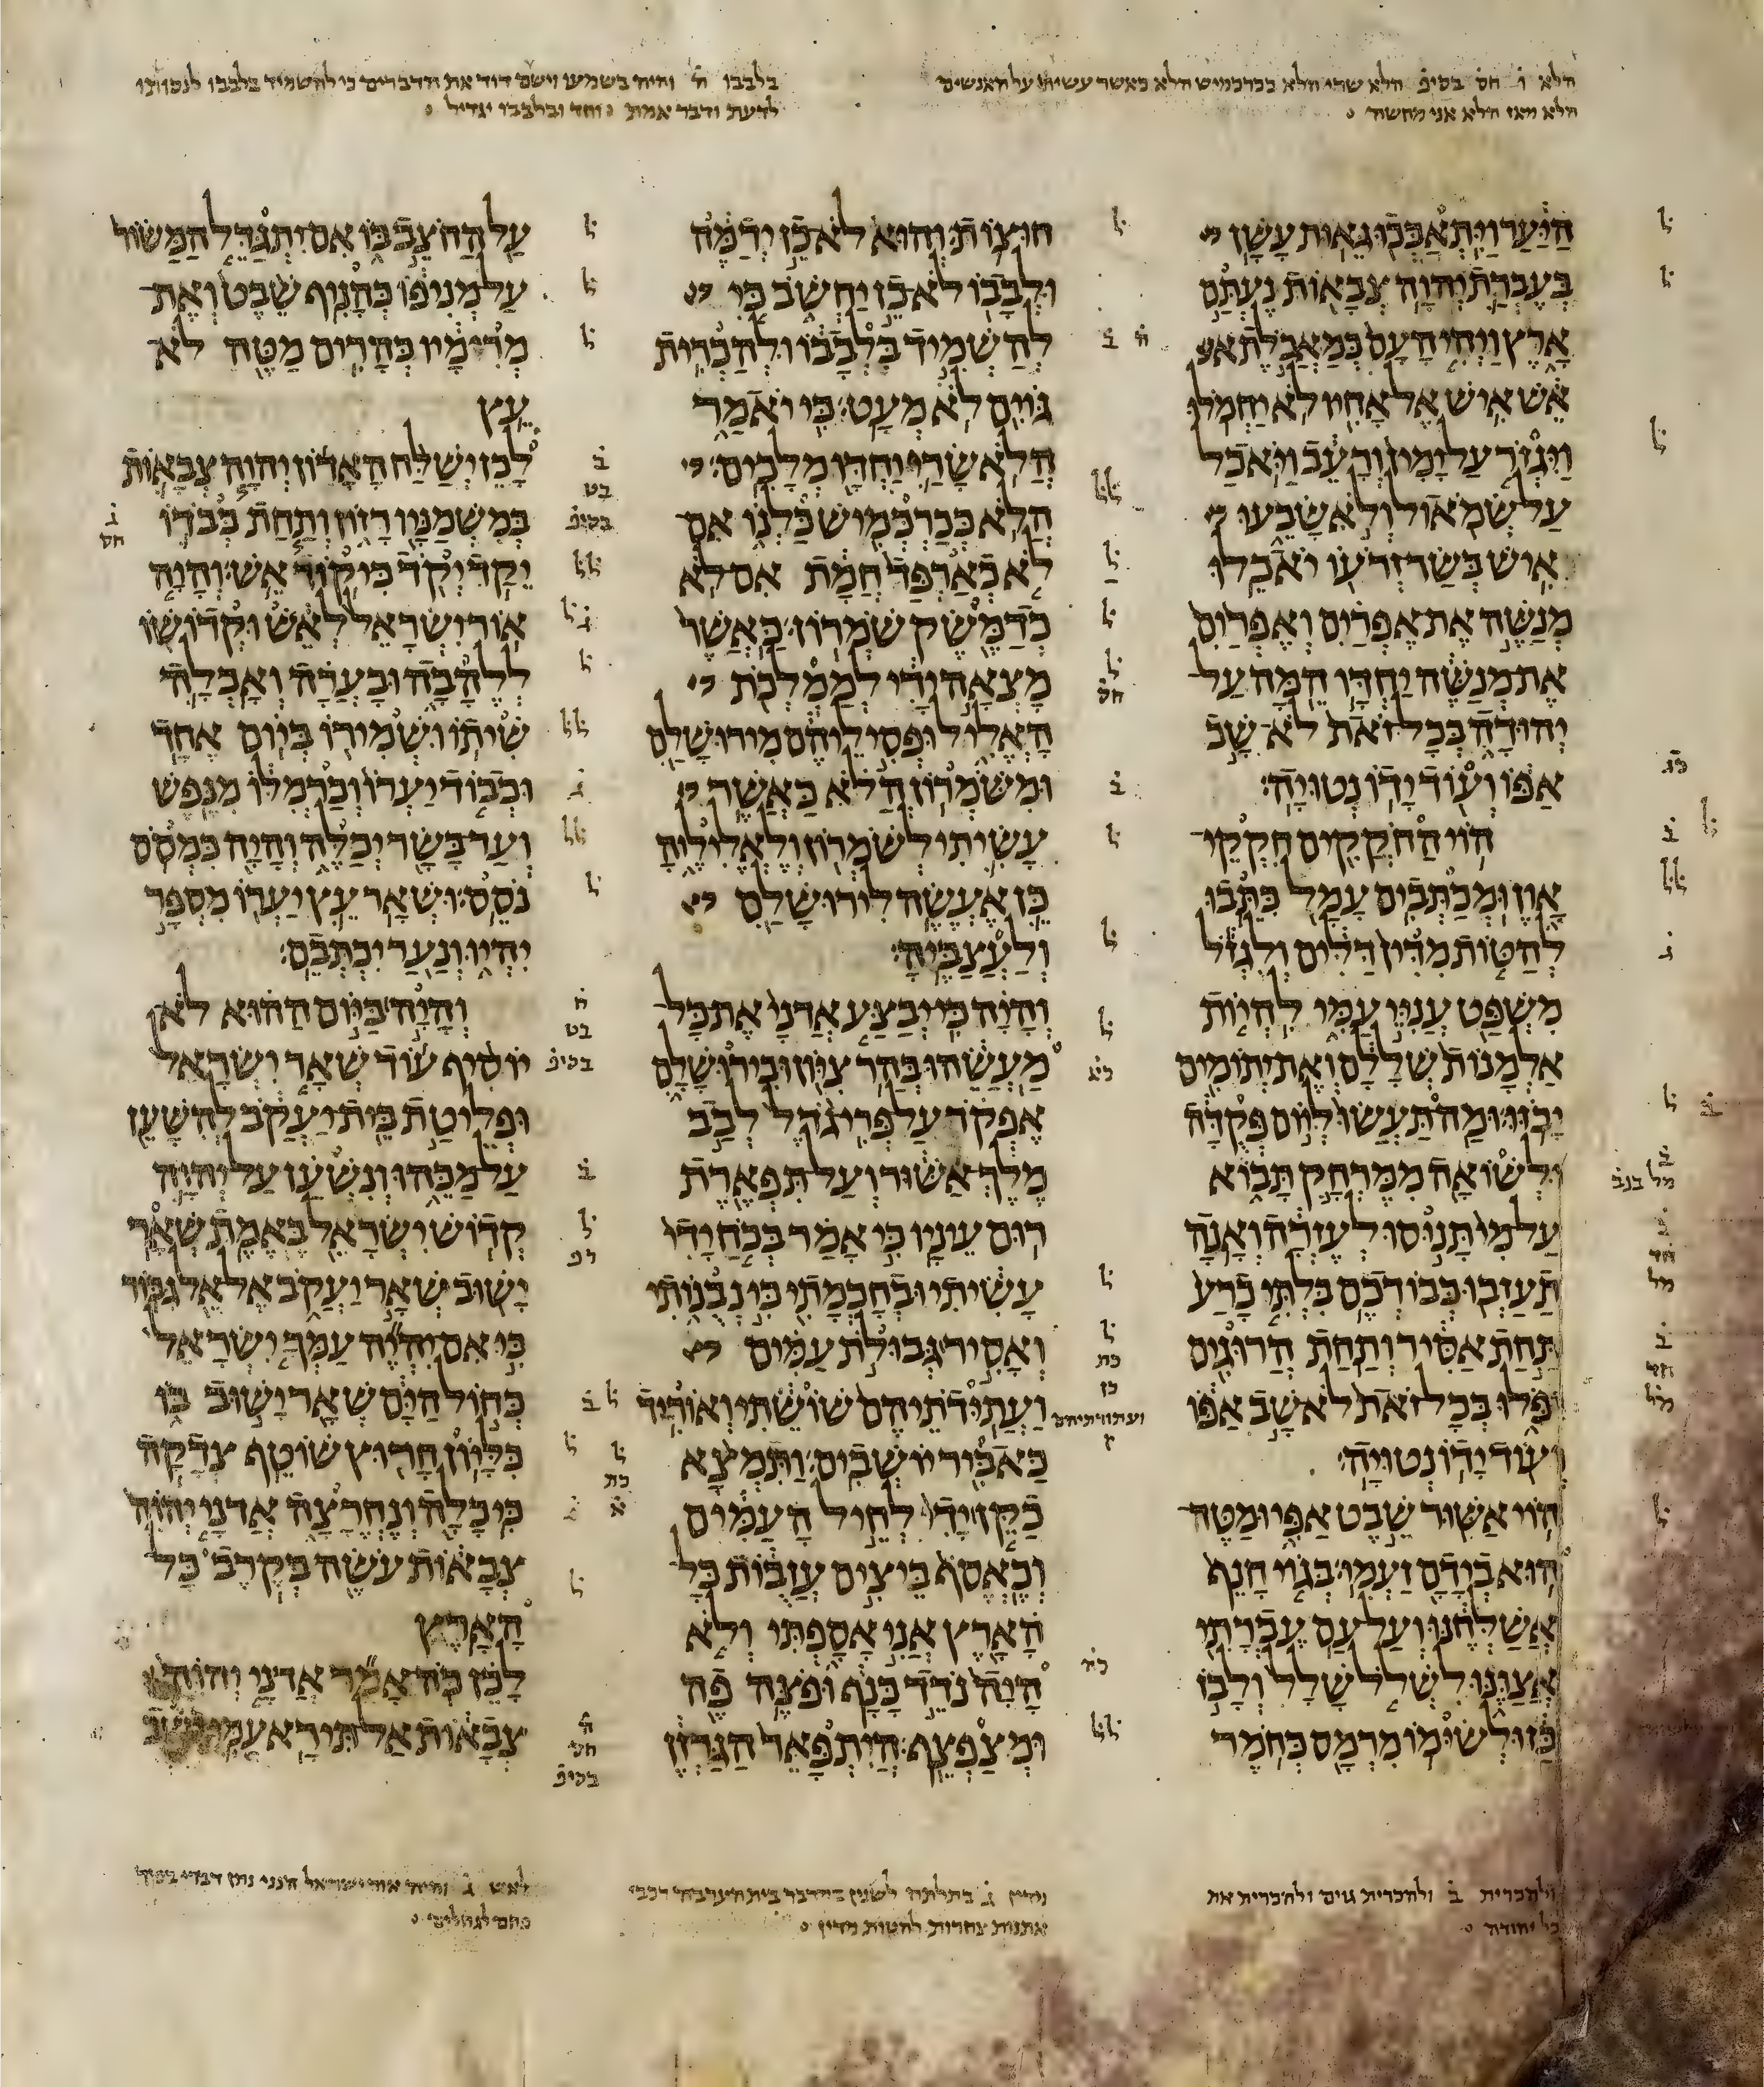 הלא ו חס בסיפ הלא שרי הלא ככרכמיש הלא כאשר עשיתי על האנשים
הלא מאז הלא אני מחשה
בלבבו ח והיה בשמעו וישם דוד את הדברים כי להשמיד בלבבו לנסותו
לדעת ודבר אמת וחד ובלבבו יגדיל
היער ויתאבכו גאות עשן
בעברת יהוה צבאות נעתם
ארץ ויהי העם כמאכלת אש
איש אל אחיו לא יחמלו
ויגזר על ימין ורעב ויאכל
על שמאול ולא שבעו
איש בשר זרעו יאכלו
מנשה את אפרים ואפרים
את מנשה יחדו המה על
יהודה בכל זאת לא שב
אפו ועוד ידו נטויה׃
הוי החקקים חקקי
און ומכתבים עמל כתבו
להטות מדין דלים ולגזל
משפט עניי עמי להיות
אלמנות שללם ואת יתומים
יבזו׃ ומה תעשו ליום פקדה
ולשואה ממרחק תבוא
על מי תנוסו לעזרה ואנה
תעזבו כבודכם׃ בלתי כרע
תחת אסיר ותחת הרוגים
יפלו בכל זאת לא שב אפו
ועוד ידו נטויה׃
הוי אשור שבט אפי ומטה
הוא בידם זעמי׃ בגוי חנף
אשלחנו ועל עם עברתי
אצונו לשלל שלל ולבז
בז ולשומו מרמס כחמר
חוצות׃ והוא לא כן ידמה
ולבבו לא כן יחשב כי
להשמיד בלבבו ולהכרית
גוים לא מעט׃ כי יאמר
הלא שרי יחדו מלכים׃
הלא ככרכמיש כלנו אם
לא כארפד חמת אם לא
כדמשק שמרון׃ כאשר
מצאה ידי לממלכת
האליל ופסיליהם מירושלם
ומשמרון׃ הלא כאשר
עשיתי לשמרון ולאליליה
כן אעשה לירושלם
ולעצביה׃
והיה כי יבצע אדני את כל
מעשהו בהר ציון ובירושלם
אפקד על פרי גדל לבב
מלך אשור ועל תפארת
רום עיניו׃ כי אמר בכח ידי
עשיתי ובחכמתי כי נבנותי
ואסיר גבולת עמים
ועתודתיהם שושתי ואוריד
כאביר יושבים׃ ותמצא
כקן ידי לחיל העמים
וכאסף ביצים עזבות כל
הארץ אני אספתי ולא
היה נדד כנף ופצה פה
ומצפצף׃ היתפאר הגרזן
על החצב בו אם יתגדל המשור
על מניפו כהניף שבט ואת
מרימיו כהרים מטה לא
עץ
לכן ישלח האדון יהוה צבאות
במשמניו רזון ותחת כבדו
יקד יקד כיקוד אש׃ והיה
אור ישראל לאש וקדושו
ללהבה ובערה ואכלה
שיתו ושמירו ביום אחד
וכבוד יערו וכרמלו מנפש
ועד בשר יכלה והיה כמסס
נסס׃ ושאר עץ יערו מספר
יהיו ונער יכתבם׃
והיה ביום ההוא לא
יוסיף עוד שאר ישראל
ופליטת בית יעקב להשען
על מכהו ונשען על יהוה
קדוש ישראל באמת׃ שאר
ישוב שאר יעקב אל אל גבור
כי אם יהיה עמך ישראל
כחול הים שאר ישוב בו
כליון חרוץ שוטף צדקה
כי כלה ונחרצה אדני יהוה
צבאות עשה בקרב כל
הארץ
לכן כה אמר אדני יהוה
צבאות אל תירא עמי ישב
ולהכרית ב ולהכרית גוים ולהכרית את
כל יהודה
מדין ג בתלתה לשנין במדבר בית הערבה רכבי
אתנות צחרות להטות מדין
לאש ג והיה אור ישראל הנני נתן דברי בפיך
פחם לגחלים